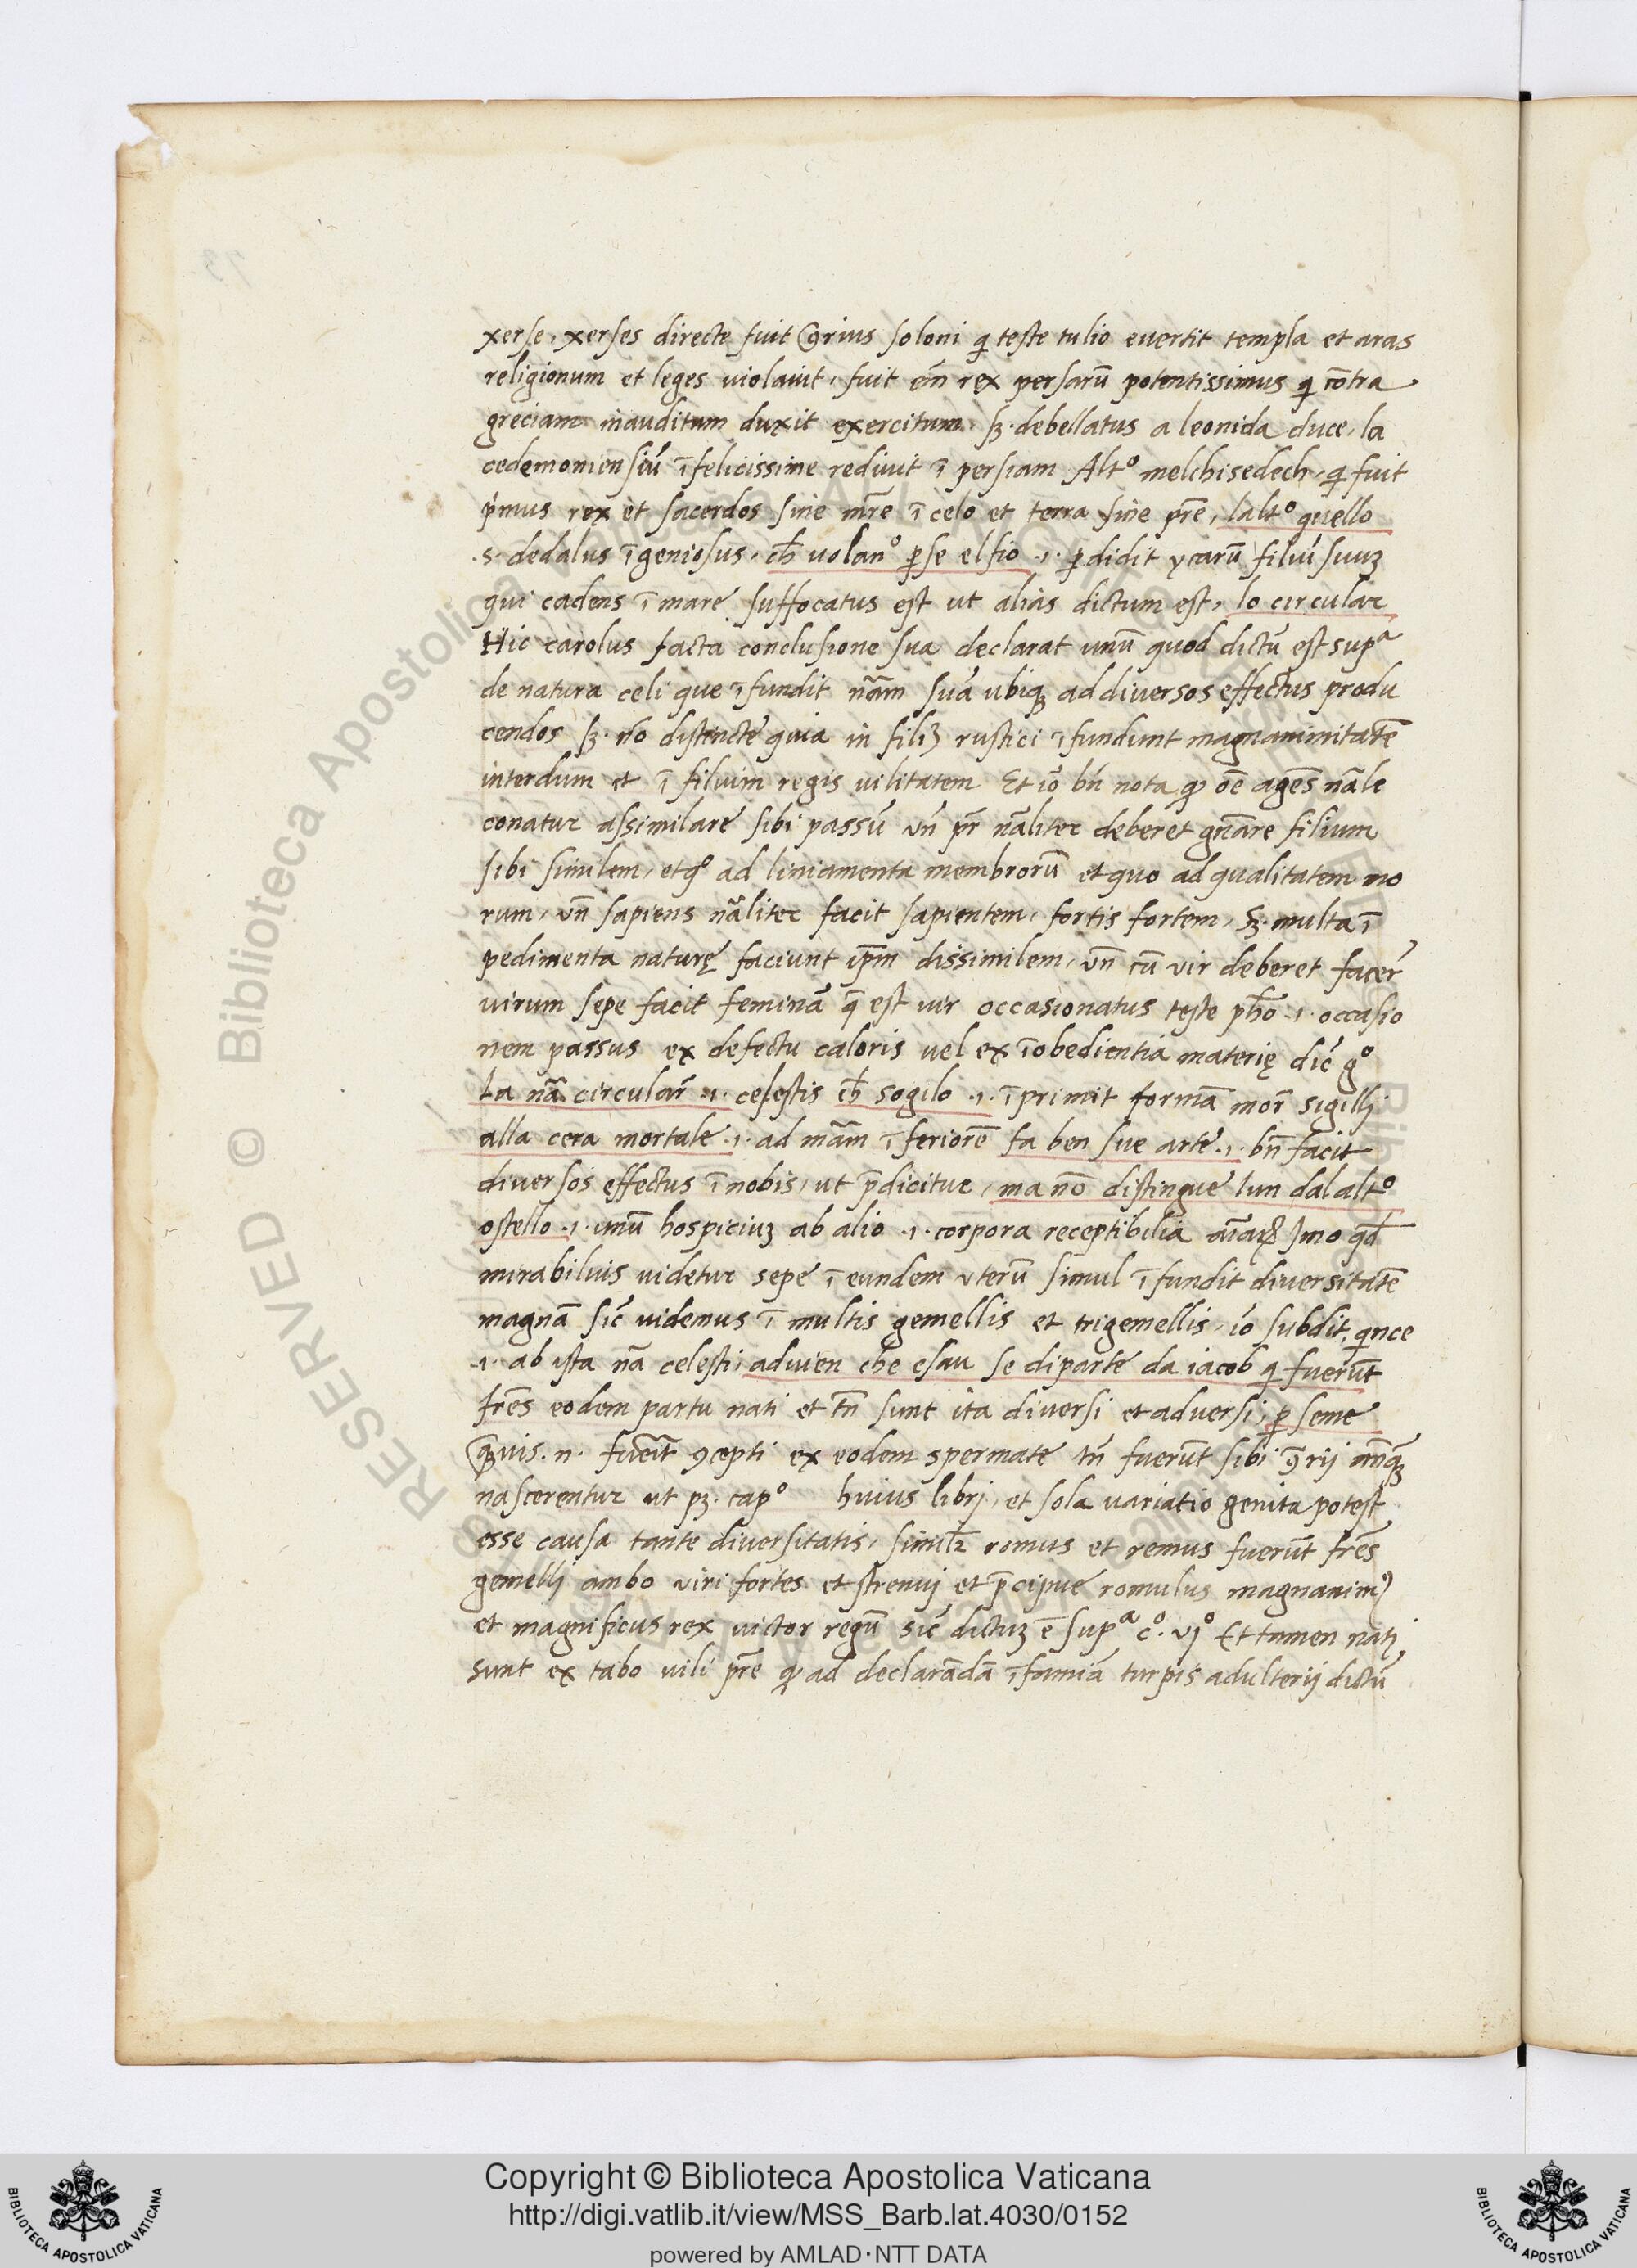 xerse, xerses directe fuit 9rius soloni q̇ teste tulio euertit templa et aras
religionum et leges uiolauit, fuit em̄ rex persarū potentissimus q̇ cōtra
greciam inauditum duxit exercitum. sȝ. debellatus a leonida duce, la
cedemoniensiū īfelicissime rediuit ī persiam Alt° melchisedech, q̇ fuit
ṗmus rex et sacerdos sine mr̄e ī celo et terra sine pr̄e, lalt° quello
.s. dedalus īgeniosus. ch̄ uolan° p̱se el fio .1. p̱didit ycarū filiū suuȝ
qui cadens ī mare suffocatus est ut alias dictum est, lo circular
Hic carolus facta conclusione sua declarat unū quod dictū est supᵃ
de natura celi que īfundit nāam suā ubiqȝ ad diuersos effectus produ
cendos sȝ. nō distincte quia in filiȝ rustici īfundunt magnanimitatē
interdum et ī filium regis uilitatem Et iō bn̄ nota ꝙ oē agēs nāle
conatur assimilare sibi passū vn̄ pr̄ nāliter deberet gn̄are filium
sibi similem, et q° ad liniamenta membrorū et quo ad qualitatem mo
rum, vn̄ sapiens nāliter facit sapientem, fortis fortem, sȝ. multa ī
pedimenta naturę faciunt ip̄m dissimilem, vn̄ cū vir deberet facer̄
uirum sepe facit feminā q̄ est uir occasionatus teste ph̄o .1. occasio
nem passus ex defectu caloris uel ex īobedientia materię dic̄ g°
La nā circular̄ .1. celestis ch̄ sogilo .1. īprimit formā mor̄ sigilli
alla cera mortale .1. ad mām īferiorē fa ben sue arte .1. bn̄ facit
diuersos effectus ī nobis, ut p̄dicitur, ma nō distingue lun dal alt°
ostello .1. unū hospiciuȝ ab alio .1. corpora receptibilia aīaꝝ Imo qd̄
mirabilius uidetur sepe ī eundem uterū simul īfundit diuersitatē
magnā sic̄ uidemus ī multis gemellis et trigemellis, iō subdit, qince
.1. ab ista nā celesti, aduien che esau se diparte da iacob q̇ fuerūt
fr̄es eodem partu nati et tn̄ sunt ita diuersi et aduersi, p̱ seme
q̄uis .n. fuer̄t 9cepti ex eodem spermate tn̄ fuerūt sibi 9̄rij an̄qȝ
nascerentur ut pȝ. cap° huius librj, et sola uariatio genita potest
esse causa tante diuersitatis, simil̄r romus et remus fuerūt fr̄es
gemelli ambo viri fortes et strenuj et p̄cipue romulus magnanim9
et magnificus rex uictor regū sic̄ dictuȝ ē supᵃ c°. vj° Et tamen nati
sunt ex tabo uili pr̄e ꝙ ad declarādā īfamiā turpis adulterij dictū
Copyright © Biblioteca Apostolica Vaticana
http://digi.vatlib.it/view/MSS_Barb.lat.4030/0152
powered by AMLAD·NTT DATA